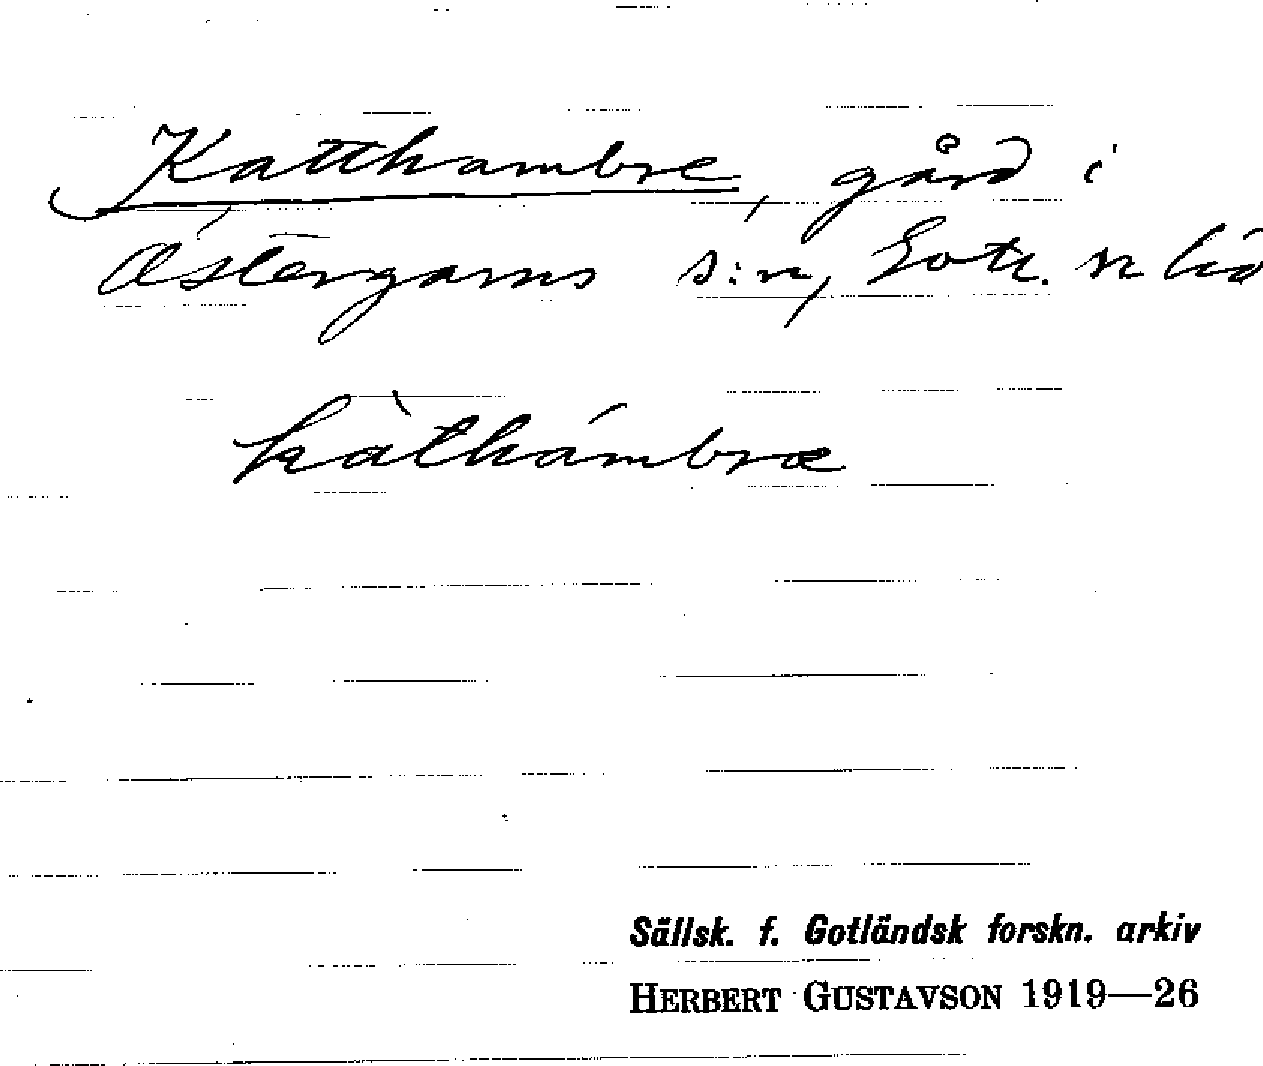 Katthambre, gård i
Östergarns s:n, Gotl. n hd
kàthámbræ
Sällsk. f. Gotländsk forskn. arkiv
HERBERT GUSTAVSON 1919—26